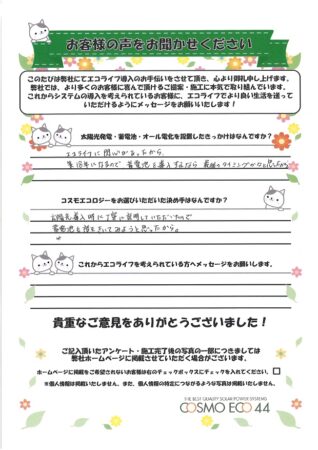 お客様の声をお聞かせください
このたびは弊社にてエコライフ導入のお手伝いをさせて頂き、心より御礼申し上げます。
弊社では、より多くのお客様に喜んで頂けるご提案・施工に本気で取り組んでいます。
これからシステムの導入を考えられているお客様に、エコライフでより良い生活を送って
いただけるようにメッセージをお願いします！
太陽光発電・蓄電池・オール電化を設置したきっかけはなんですか？
エコライフに関心があったから
コスモエコロジーをお選びいただいた決め手はなんですか？
太陽光導入時に丁寧に説明していただいたので
蓄電池も お願いしてみようと思ったから。
これからエコライフを考えられている方へメッセージをお願いします。
貴重なご意見をありがとうございました！
ご記入頂いたアンケート・施工完了後の写真の一部につきましては
弊社ホームページに掲載させていただく場合がございます。
ホームページに掲載をご希望されないお客様は右のチェックボックスにチェックを入れてください。
※個人情報は掲載いたしません。また、個人情報の特定につながるような写真は掲載いたしません。
THE BEST QUALITY SOLAR POWER SYSTEMS
COSMO ECO 44